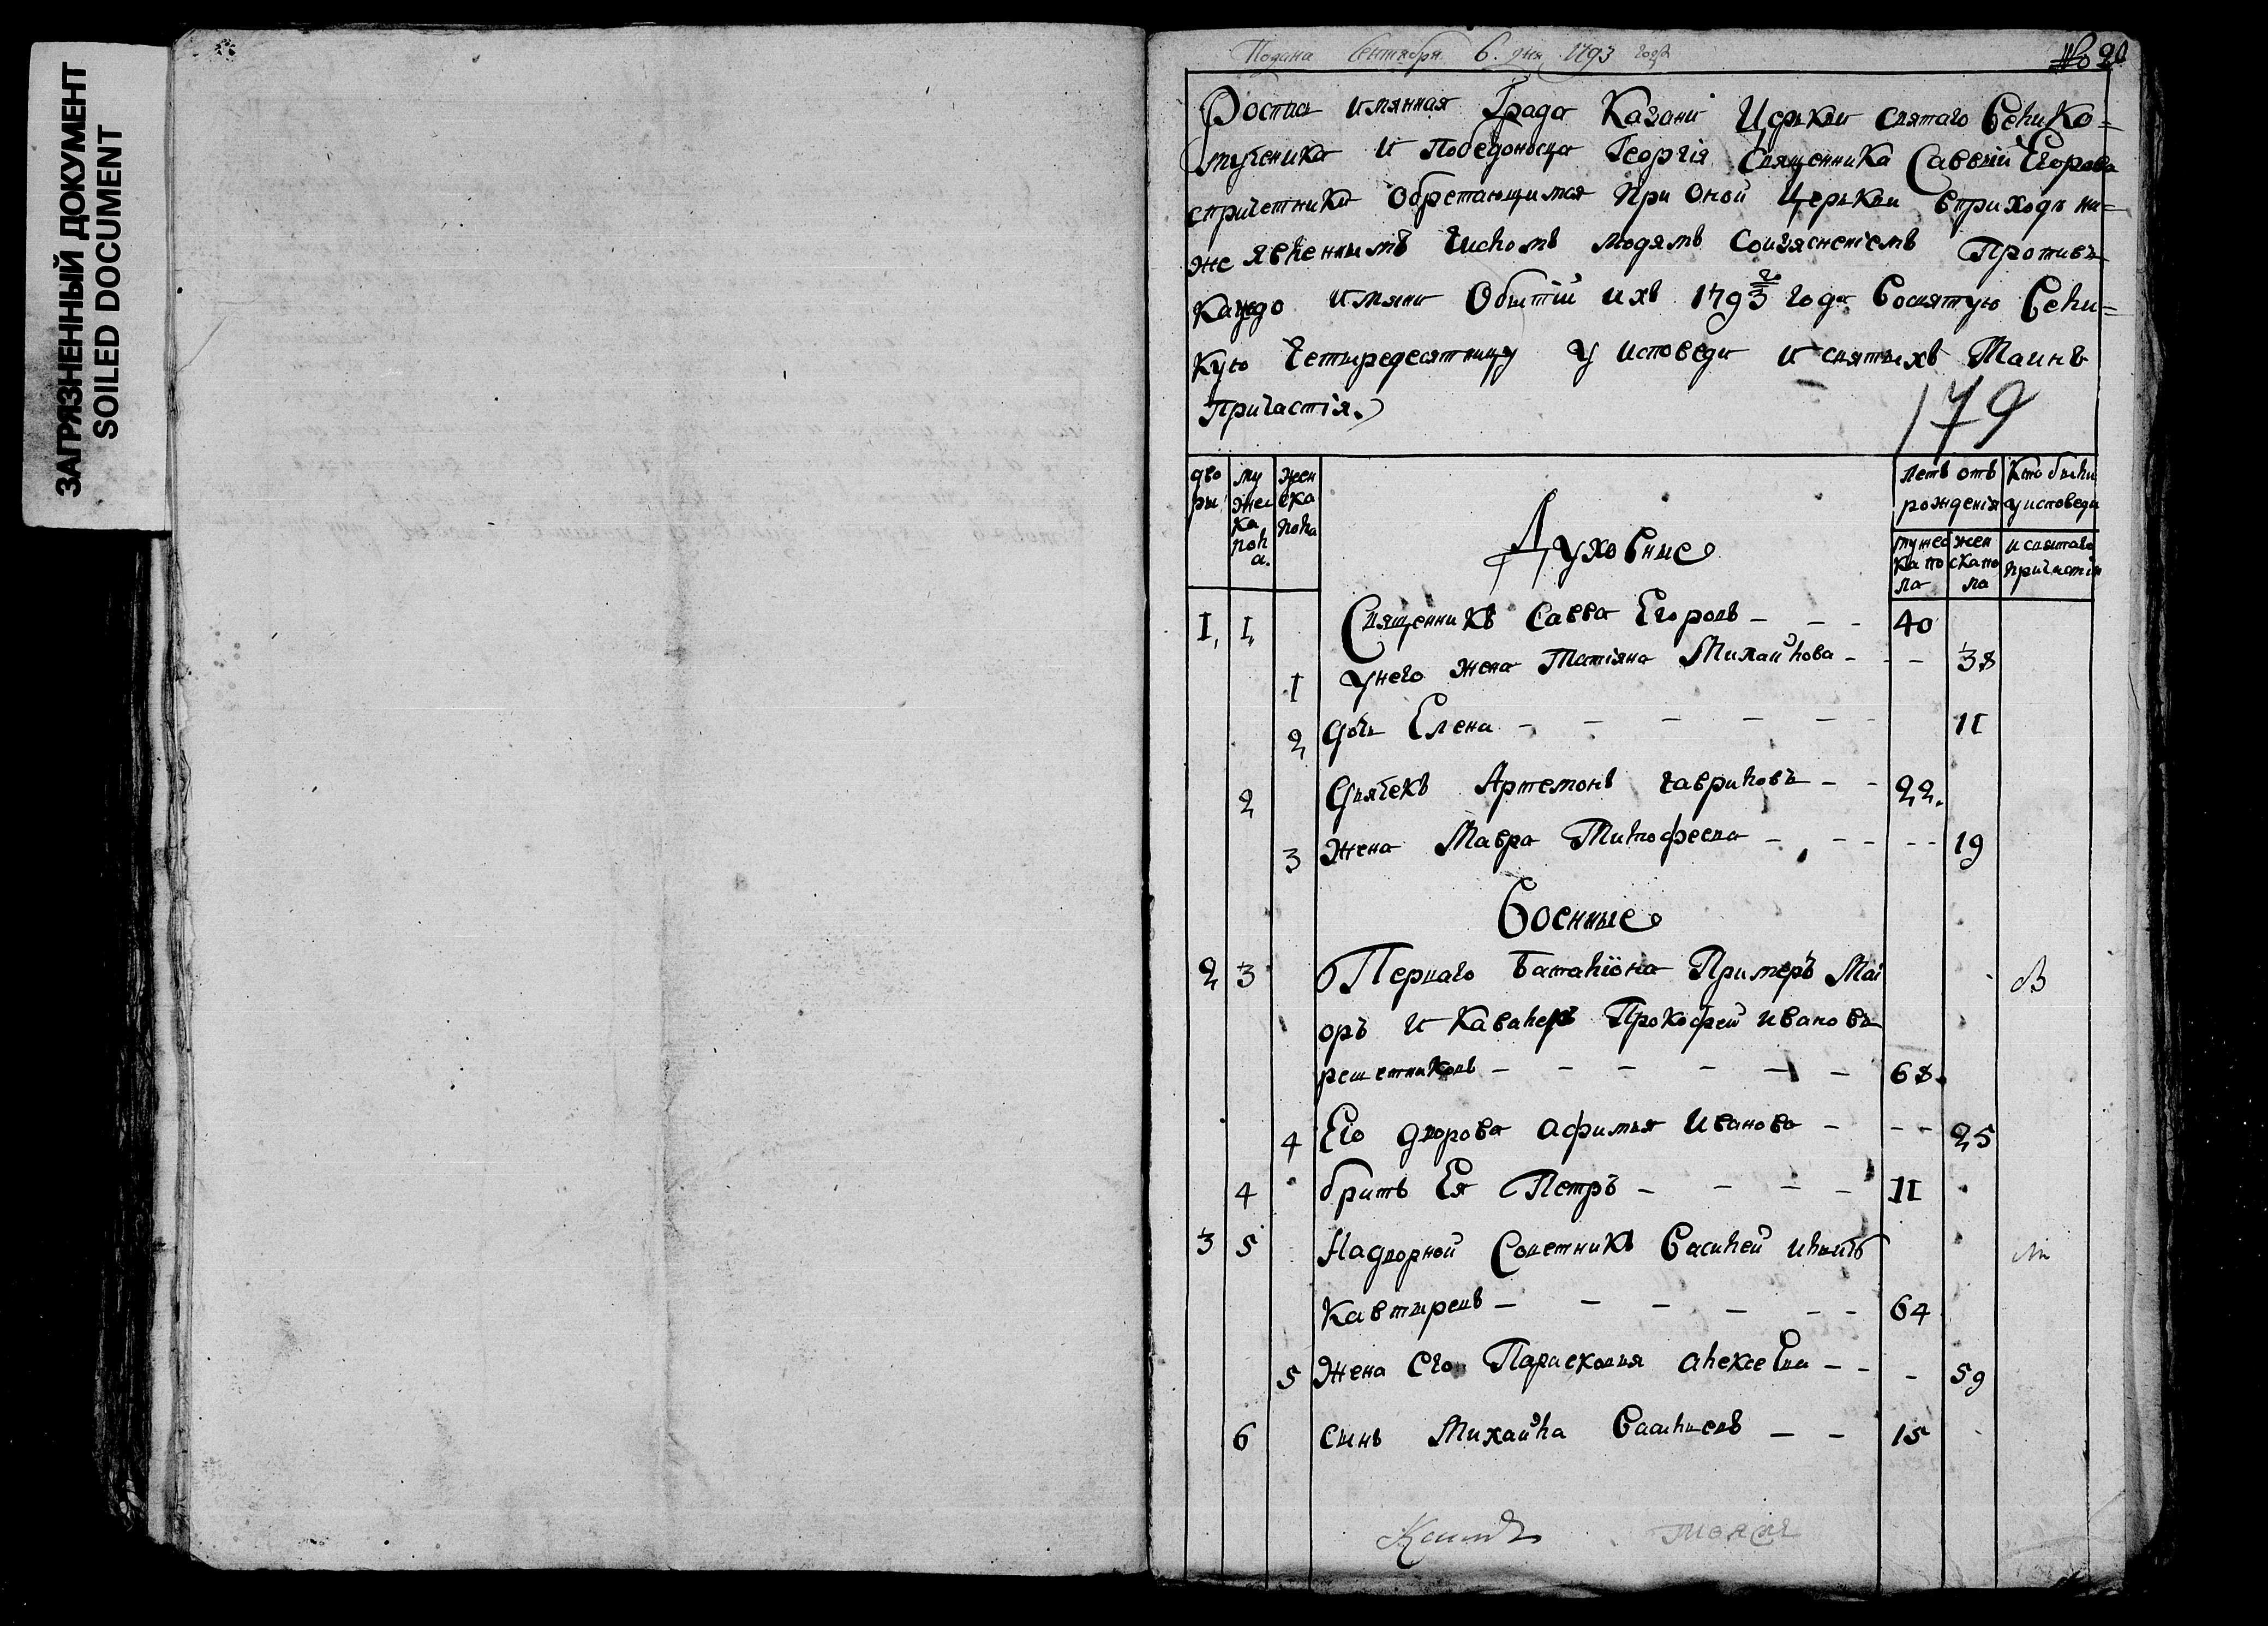 ЗАГРЯЗНЕННЫЙ ДОКУМЕНТ
SOILED DOCUMENT
Подана Сентября 6. дня 1793 года
№ 20
Роспись имянная Града Казани Церькви святаго Велико=
мученика и Победоносца Георгия Священника Саввы Егорова
спричетники обретающимся при оной Церькви вприходѣ ни=
же явленнымъ числомъ людямъ соизяснениемъ Противъ
каждо имяни обытии ихъ 1793 го года восвятую Вели=
кую четыредесятницу у исповеди и святыхъ Таинъ
причастія.
179
дво ры
му жеска пола.
жен ска пола
Духовные
летъ отъ рожденія
мужеска пола
женска пола
Кто были у исповеди и святаго причастия
1, 1, Священникъ Савва Егоровъ - - - 40
1 унего жена Татіяна Михайлова - - - 38
2 дочь Елена - - - - - 11
2 Дьячекъ Артемонъ гавриловъ - - 22.
3 жена Мавра Тимофеева - - - - - 19
Военные
2 3 Перваго баталіона Примеръ Маі
оръ и кавалеръ Прокофей ивановъ
решетниковъ - - - - - - 68.
4 Его дворова афимья иванова - - - 25
4 братъ Ея Петръ - - - - 11
3 5 Надворной Советникъ Василей ильичъ
Кавтыревъ - - - - - - 64
5 жена его Парасковья алексеева - - - 59
6 сынъ Михайла Васильевъ - - 15